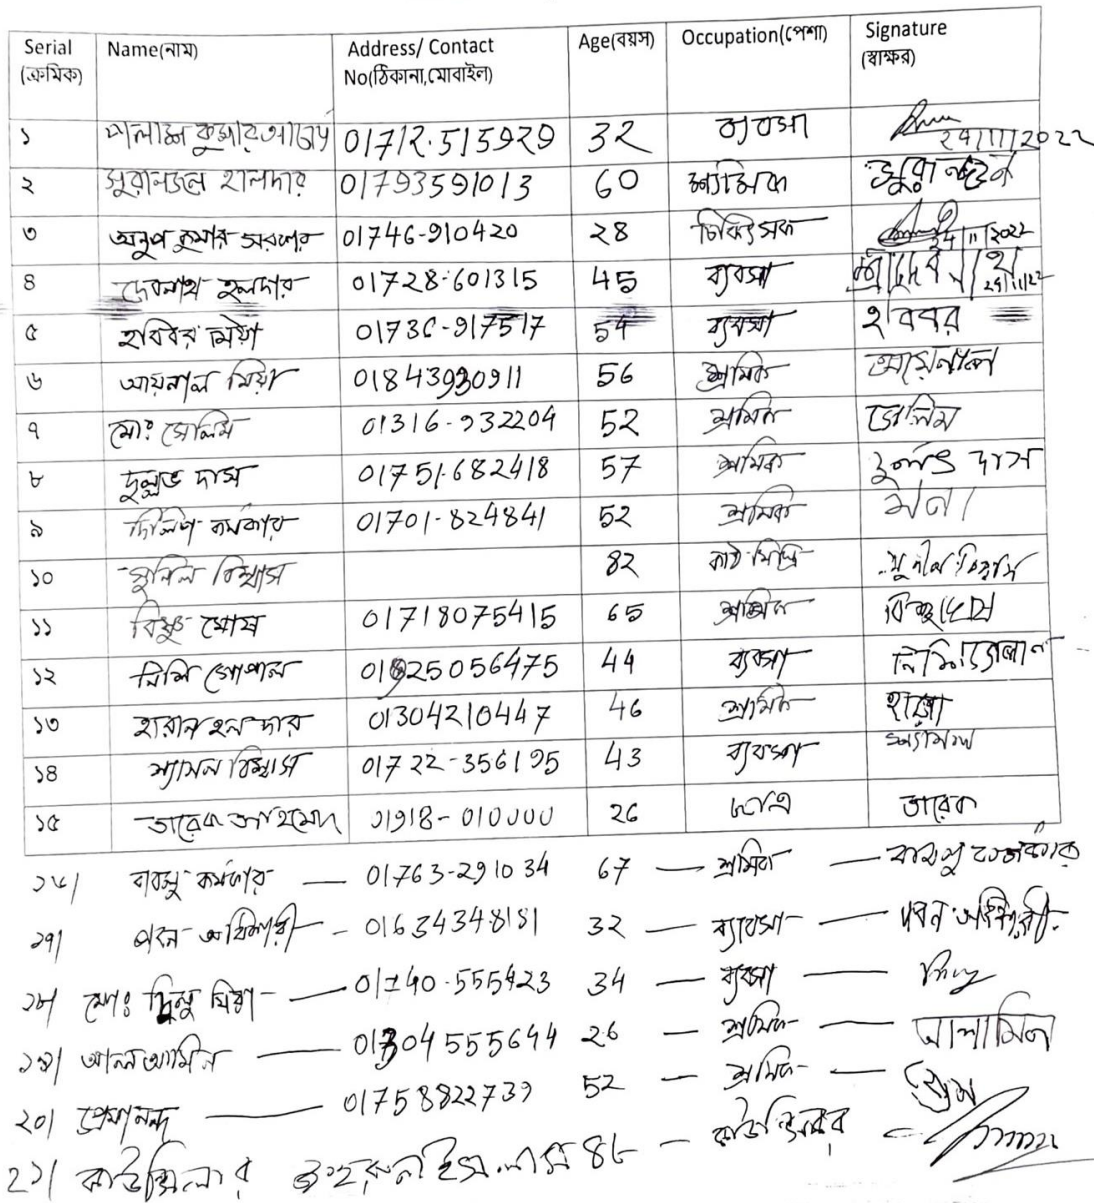 Serial (ক্রমিক) Name(নাম) Address/ Contact No(ঠিকানা,মোবাইল) Age(বয়স) Occupation(পেশা) Signature (স্বাক্ষর)
১ কুমার 01712.515929 32 ব্যবসা 24/11/2022
২ সুরানজন হালদার 01793591013 60 শ্রমিক
৩ অনুপ কুমার সরকার 01746-910420 28 চিকিৎসক 24/11/2022
৪ দেবনাথ হালদার 01728-601315 45 ব্যবসা 24/11/22
৫ হবিবর মিয়া 01736-917517 54 ব্যবসা হবিবর
৬ আয়নাল মিয়া 01843930911 56 শ্রমিক আয়েনাল
৭ মোঃ সেলিম 01316-932204 52 শ্রমিক সেলিম
৮ দুল্লভ দাস 01751.682418 57 শ্রমিক দাস
৯ দিলিপ কর্মকার 01701-824841 52 শ্রমিক
১০ সুনিল বিশ্বাস 82 কাঠ মিস্ত্রি সুনীল বিশ্বাস
১১ বিষ্ণু ঘোষ 01718075415 65 শ্রমিক বিষ্ণু ঘোষ
১২ নিশি গোপাল 01925056475 44 ব্যবসা
১৩ হারান হলদার 01304210447 46 শ্রমিক
১৪ শ্যামল বিশ্বাস 01722-356195 43 ব্যবসা শ্যামল
১৫ তারেক আহমেদ 01918-010000 26 ছাত্র তারেক
১৬/ কর্মকার — 01763-291034 67 — শ্রমিক — কর্মকার
১৭/ পবন অধিকারী - 01634348181 32 — ব্যাবসা — পবন অধিকারী
১৮/ মোঃ মিয়া — 01740-555423 34 — ব্যবসা —
১৯/ আল আমিন — 01304555644 26 — শ্রমিক — আলামিন
২০/ প্রেমানন্দ — 01758822739 52 — শ্রমিক — প্রেম
২১/ কাউন্সিলার ইসলাম ৪৮ — কাউন্সিলর —